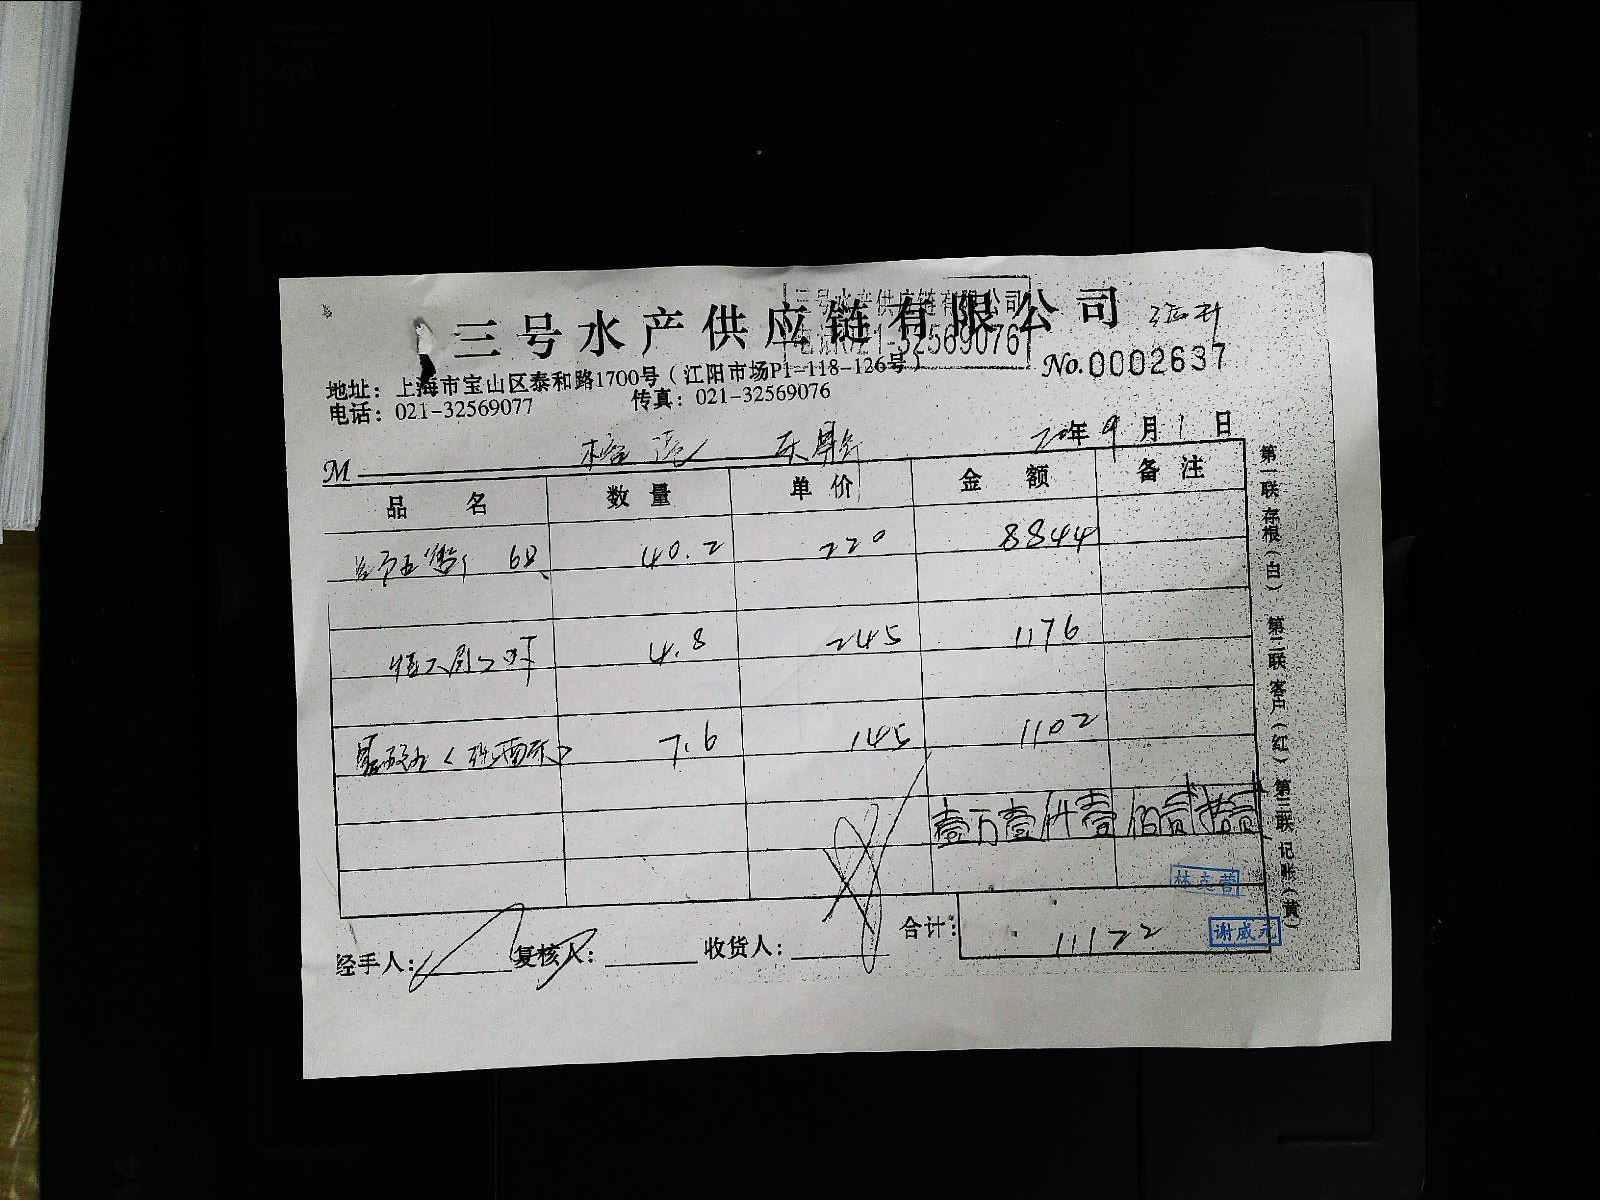 三号水产供应链有限公司
三号水产供应链有限公司
021-32569076
No.0002637
地址：上海市宝山区泰和路1700号（江阳市场P1-118-126号）
电话：021-32569077 传真：021-32569076
20年9月1日
M
品名 数量 单价 金额 备注
40.2 220 8844
4.8 245 1176
7.6 145 1102
壹万壹仟壹佰贰拾贰
合计： 11122
谢威元
经手人： 复核人： 收货人：
第一联 存根（白） 第二联 客户（红） 第三联 记账（黄）